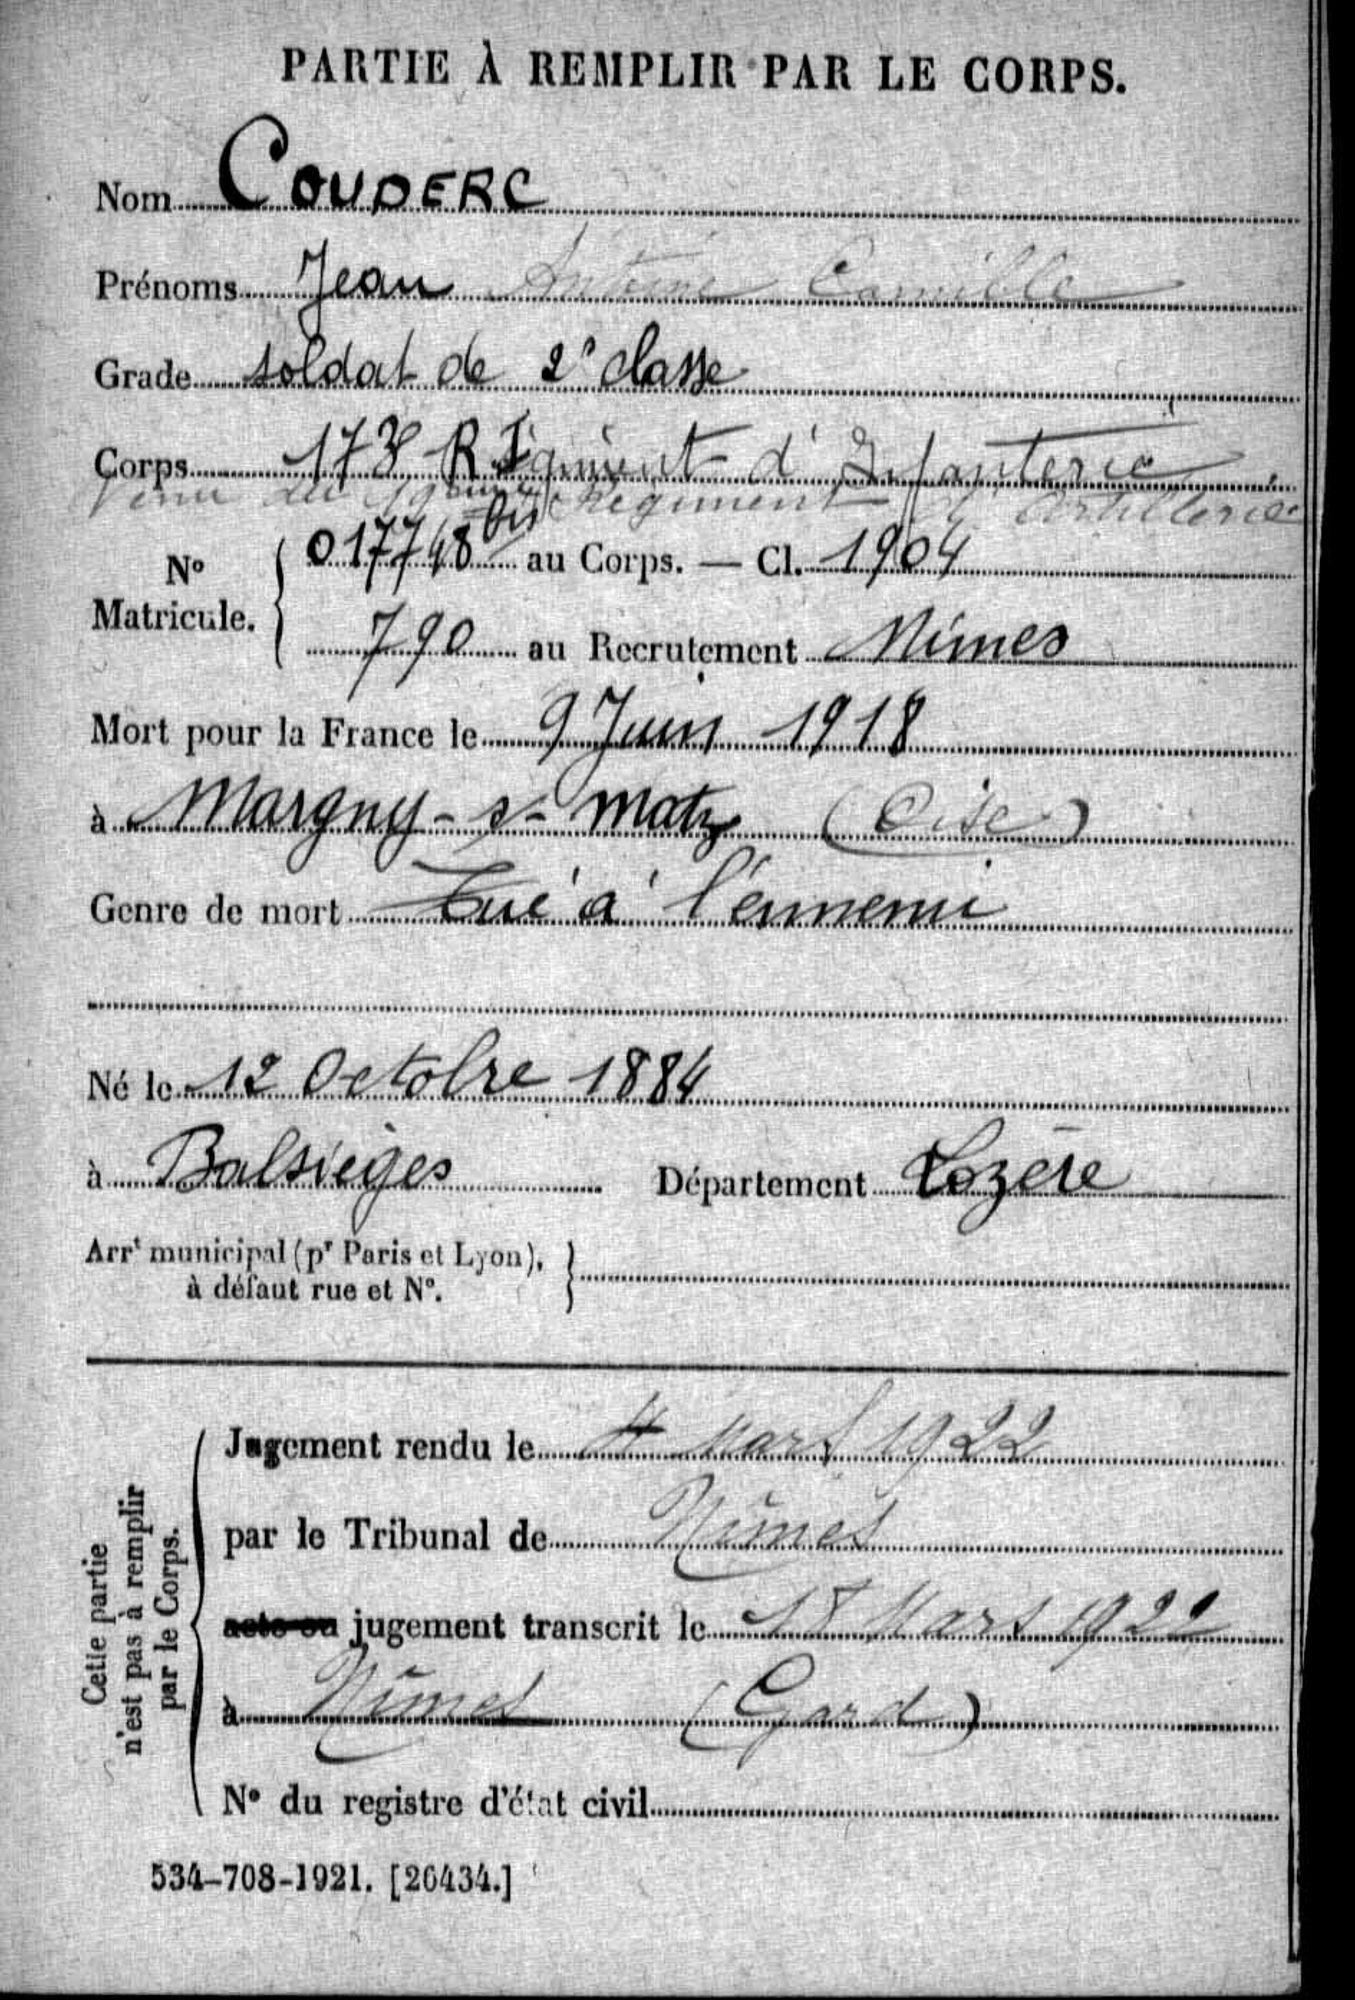 PARTIE À REMPLIR PAR LE CORPS.
Nom COUDERC
Prénoms Jean Antoine Camille
Grade soldat de 2e classe
Corps 173e Régiment d'Infanterie
Venu du Régiment d'Artillerie
No Matricule. 017748 bis au Corps. — Cl. 1904
790 au Recrutement Nîmes
Mort pour la France le 9 Juin 1918
à Margny-s-Matz (Oise)
Genre de mort Tué à l'énnemi
Né le 12 Octobre 1884
à Balsièges Département Lozère
Arrt municipal (pr Paris et Lyon),
à défaut rue et No.
Cette partie
n'est pas à remplir
par le Corps.
Jugement rendu le 4 Mars 1922
par le Tribunal de Nîmes
acte ou jugement transcrit le 18 Mars 1922
à Nîmes (Gard)
No du registre d'état civil
534-708-1921. [26434.]